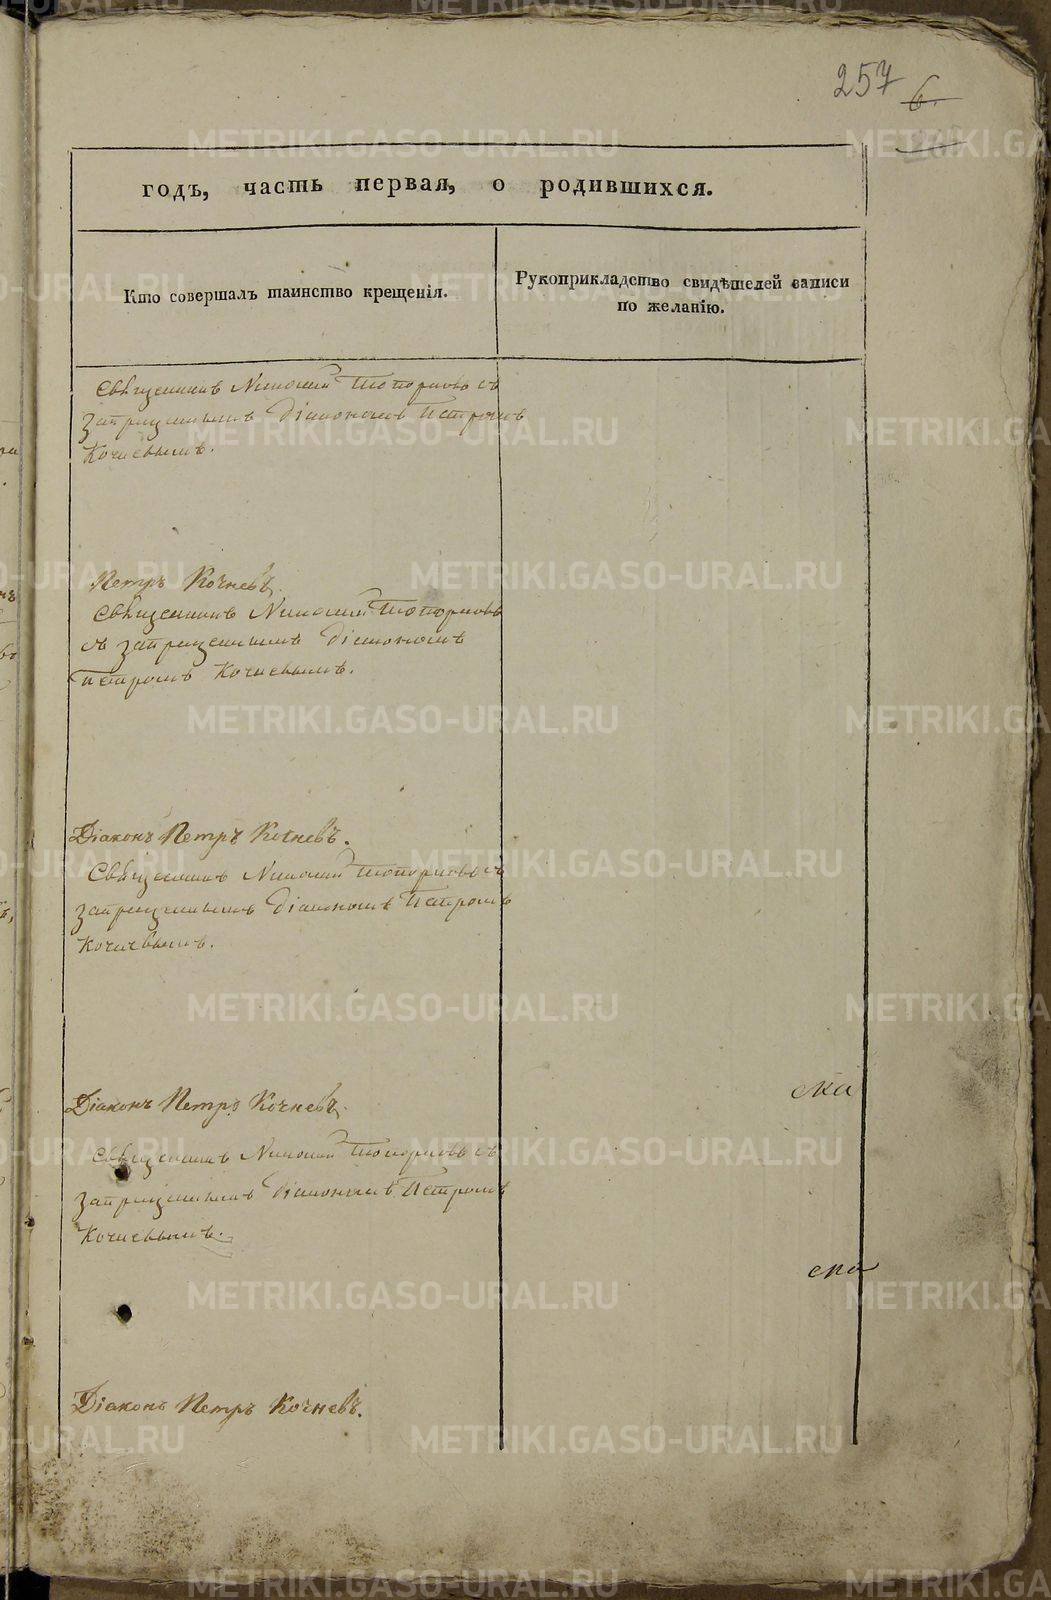 257 6
годъ, часть первая, о родившихся.
Кто совершалъ таинство крещенія.
Рукоприкладство свидѣтелей записи
по желанію.
Священникъ Николай Топорковъ съ
запрещеннымъ Діакономъ Петромъ
Кочневымъ.
Петръ Кочневъ
Священникъ Николай Топорковъ
съ запрещеннымъ Діакономъ
Петромъ Кочневымъ.
Діаконъ Петръ Кочневъ.
Священникъ Николай Топорковъ съ
запрещеннымъ Діакономъ Петромъ
Кочневымъ.
ска
Діаконъ Петръ Кочневъ.
Священникъ Николай Топорковъ съ
запрещеннымъ Діакономъ Петромъ
Кочневымъ.
ска
Діаконъ Петръ Кочневъ.
METRIKI.GASO-URAL.RU